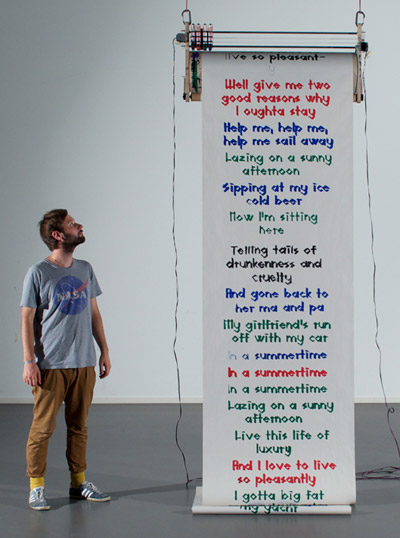 live so pleasant-
Well give me two
good reasons why
I oughta stay
Help me, help me,
help me sail away
Lazing on a sunny
afternoon
Sipping at my ice
cold beer
Now I'm sitting
here
Telling tails of
drunkenness and
cruelty
And gone back to
her ma and pa
My girlfriend's run
off with my car
In a summertime
In a summertime
In a summertime
Lazing on a sunny
afternoon
Live this life of
luxury
And I love to live
so pleasantly
I gotta big fat
my yacht
NASA